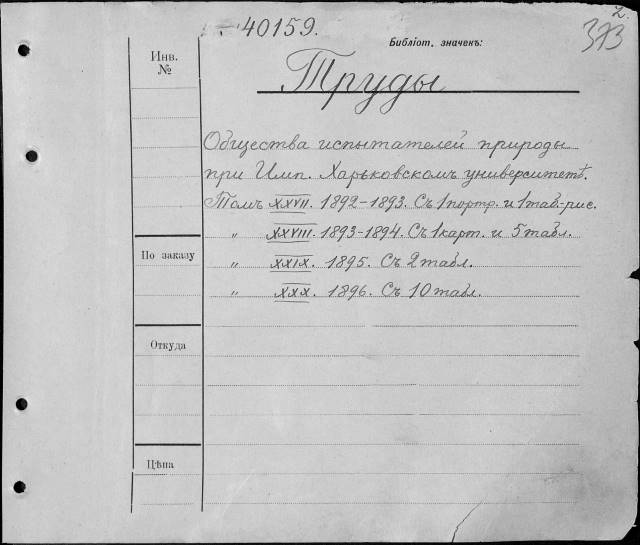 2.
40159.
Библіот. значекъ:
373
Инв.
№
Труды
Общества испытателей природы
при Имп. Харьковскомъ университетѣ.
Томъ XXVII. 1892-1893. Съ 1 портр. и 1 таб.-рис.
„ XXVIII. 1893-1894. Съ 1 карт. и 5 табл.
По заказу
„ XXIX. 1895. Съ 2 табл.
„ XXX. 1896. Съ 10 табл.
Откуда
Цѣна